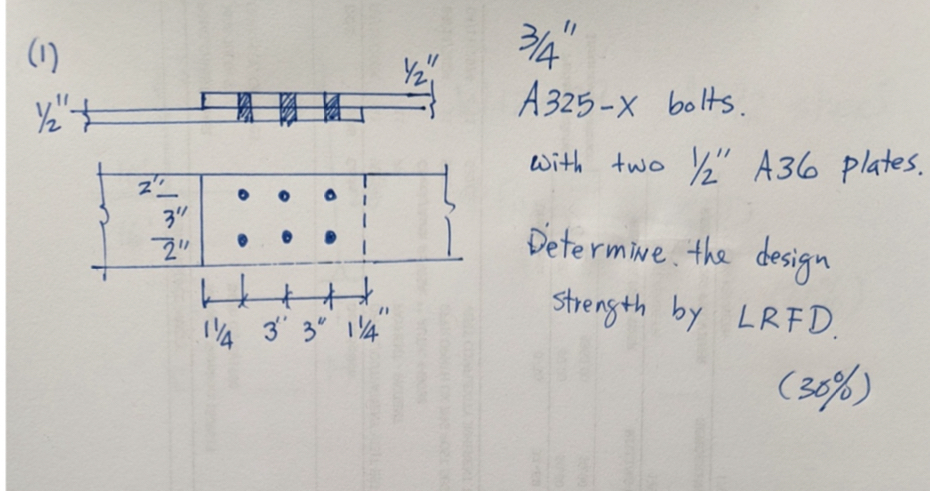 (1)
3/4"
1/2"
1/2"
A325-X bolts.
with two 1/2" A36 plates.
2"
3"
2"
Determine the design
strength by LRFD.
1 1/4 3" 3" 1 1/4"
(30%)